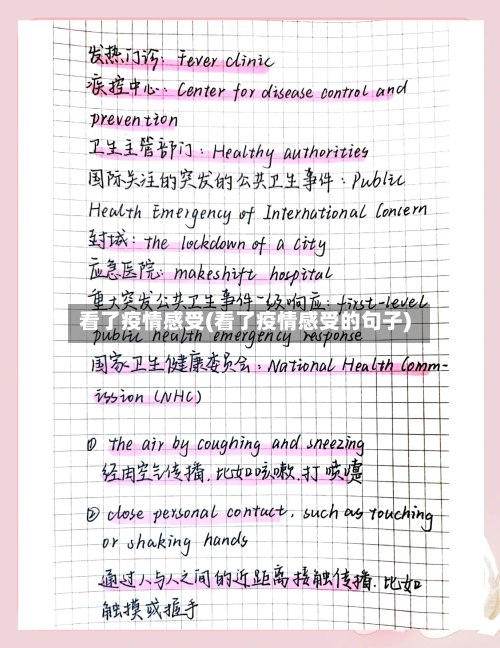 发热门诊: Fever clinic
疾控中心: Center for disease control and
prevention
卫生主管部门: Healthy authorities
国际关注的突发的公共卫生事件: Public
Health Emergency of International Concern
封城: the lockdown of a city
应急医院: makeshift hospital
重大突发公共卫生事件一级响应: first-level
看了疫情感受(看了疫情感受的句子)
public health emergency response
国家卫生健康委员会: National Health Comm-
ission (NHC)
① the air by coughing and sneezing
经由空气传播, 比如咳嗽, 打喷嚏
② close personal contact, such as touching
or shaking hands
通过人与人之间的近距离接触传播, 比如
触摸或握手